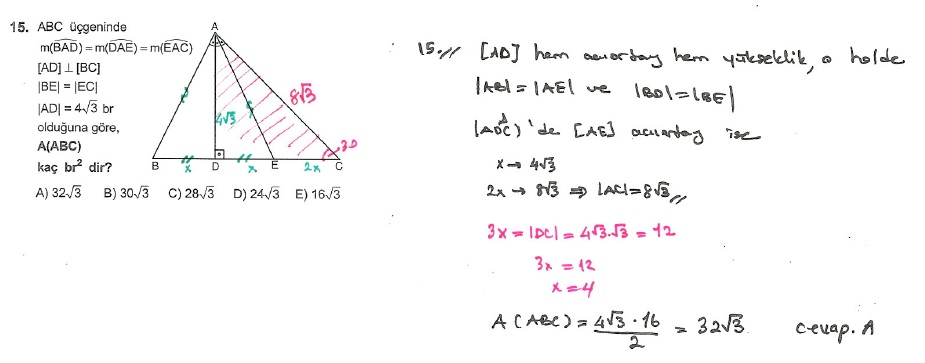 15. ABC üçgeninde
m(BAD) = m(DAE) = m(EAC)
[AD] ⊥ [BC]
|BE| = |EC|
|AD| = 4√3 br
olduğuna göre,
A(ABC)
kaç br² dir?
A) 32√3 B) 30√3 C) 28√3 D) 24√3 E) 16√3
A
8√3
4√3
30
B x D x E 2x C
15.// [AD] hem açıortay hem yükseklik, o halde
|AB| = |AE| ve |BD| = |BE|
(ADC)'de [AE] açıortay ise
x → 4√3
2x → 8√3 ⇒ |AC| = 8√3 //
3x = |DC| = 4√3.√3 = 12
3x = 12
x = 4
A(ABC) = 4√3 · 16 / 2 = 32√3 Cevap. A